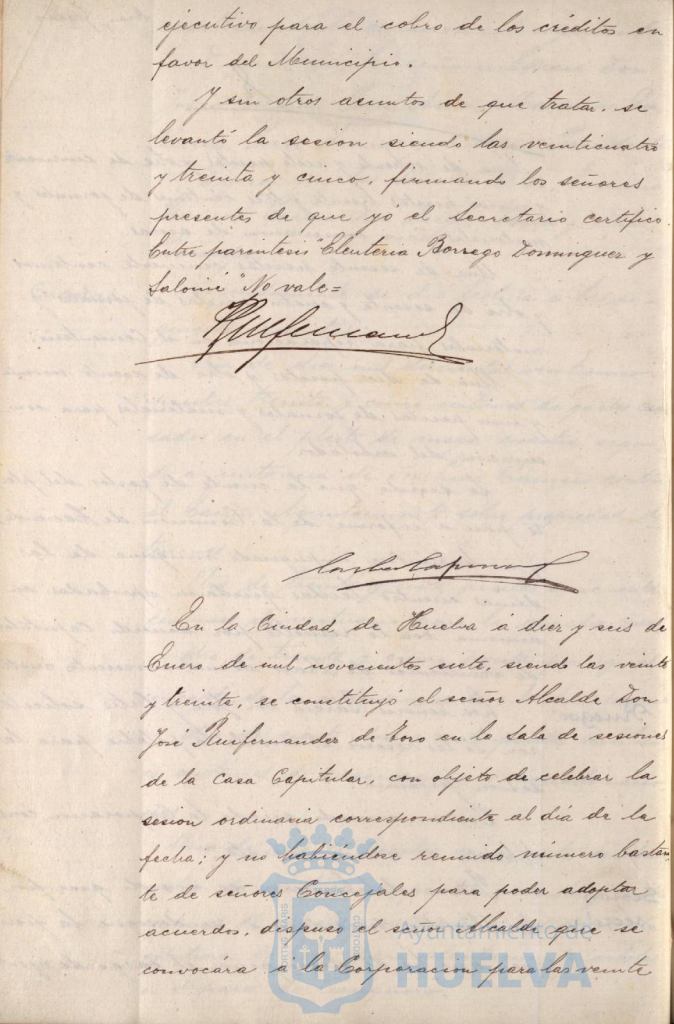 ejecutivo para el cobro de los créditos en
favor del Municipio.
Y sin otros asuntos de que tratar, se
levantó la sesion siendo las veinticuatro
y treinta y cinco, firmando los señores
presentes de que yó el Secretario certifico.
Entre paréntesis "Eleuteria Borrego Dominguez y
Salomé" No vale=
En la Ciudad de Huelva á diez y seis de
Enero de mil novecientos siete, siendo las veinte
y treinta, se constituyó el señor Alcalde Don
José Ruifernandez de Toro en la Sala de sesiones
de la Casa Capitular, con objeto de celebrar la
sesion ordinaria correspondiente al día de la
fecha; y no habiéndose reunido número bastan-
te de señores Concejales para poder adoptar
acuerdos, dispuso el señor Alcalde que se
convocára á la Corporacion para las veinte
Ayuntamiento de
HUELVA